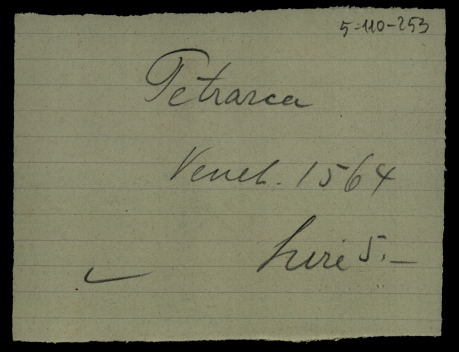 5-110-253
Petrarca
Venet. 1564
Lire 5.—